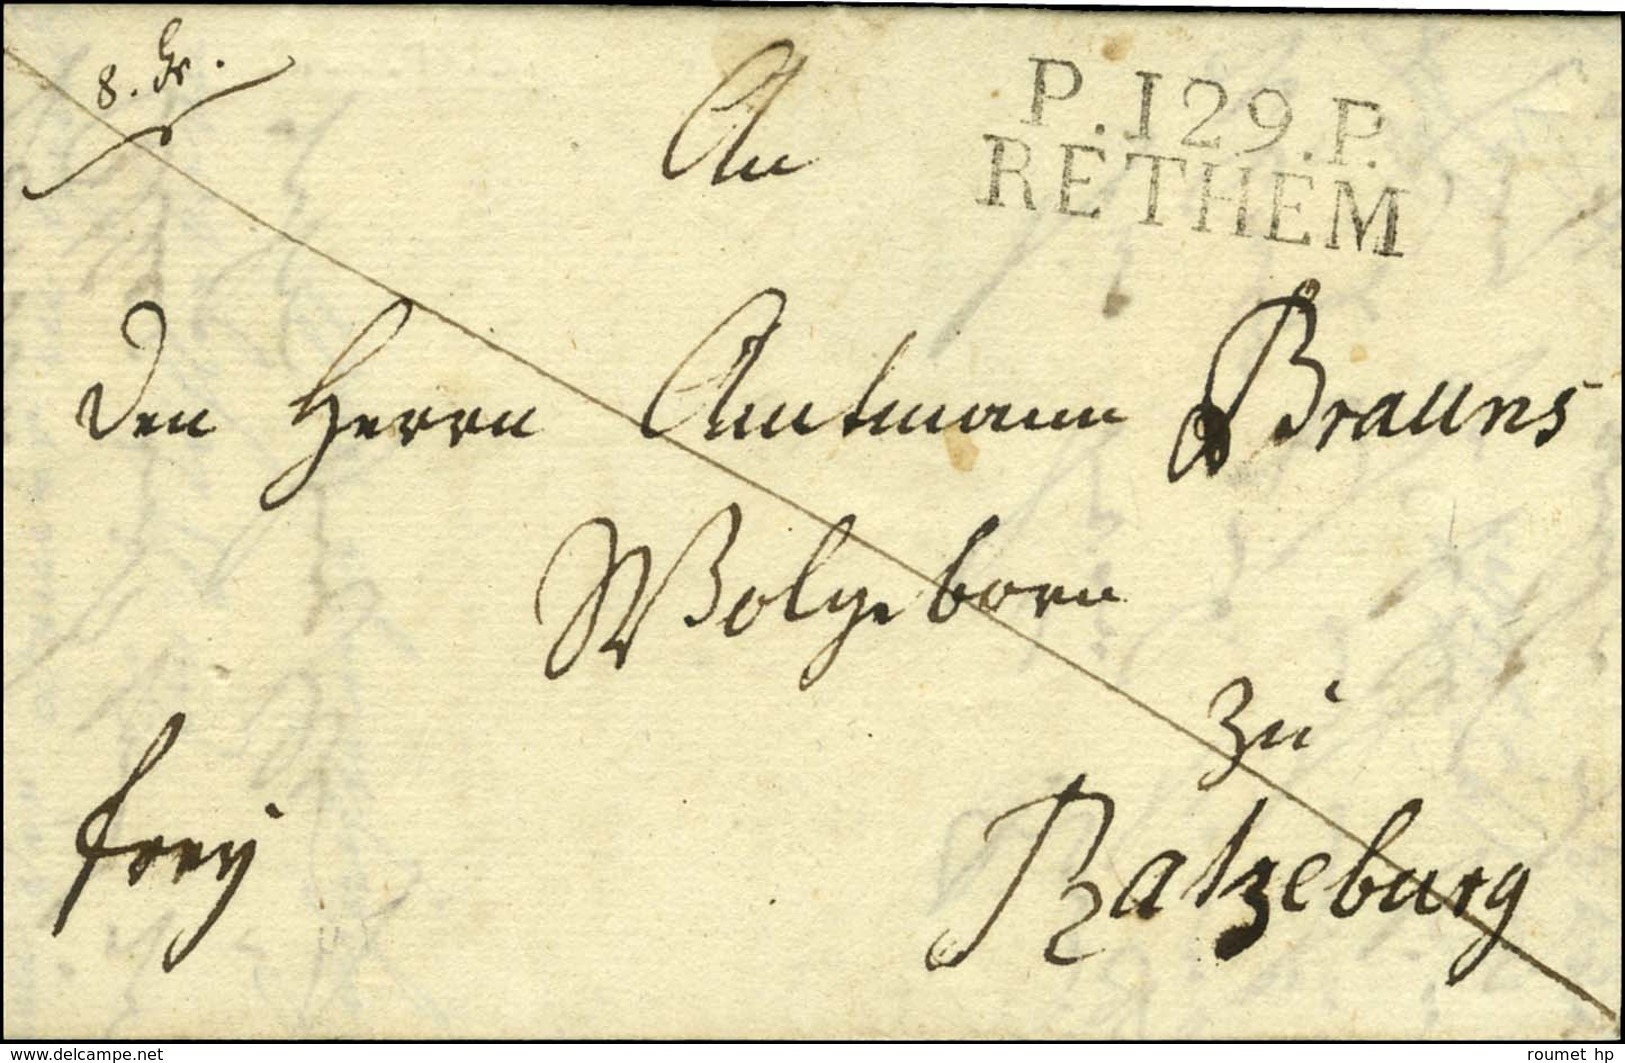 8. Gr.
An
P.129.P.
RETHEM
den Herrn Amtmann Brauns
Wolgeborn
zu
frey
Ratzeburg
www.delcampe.net
roumet hp